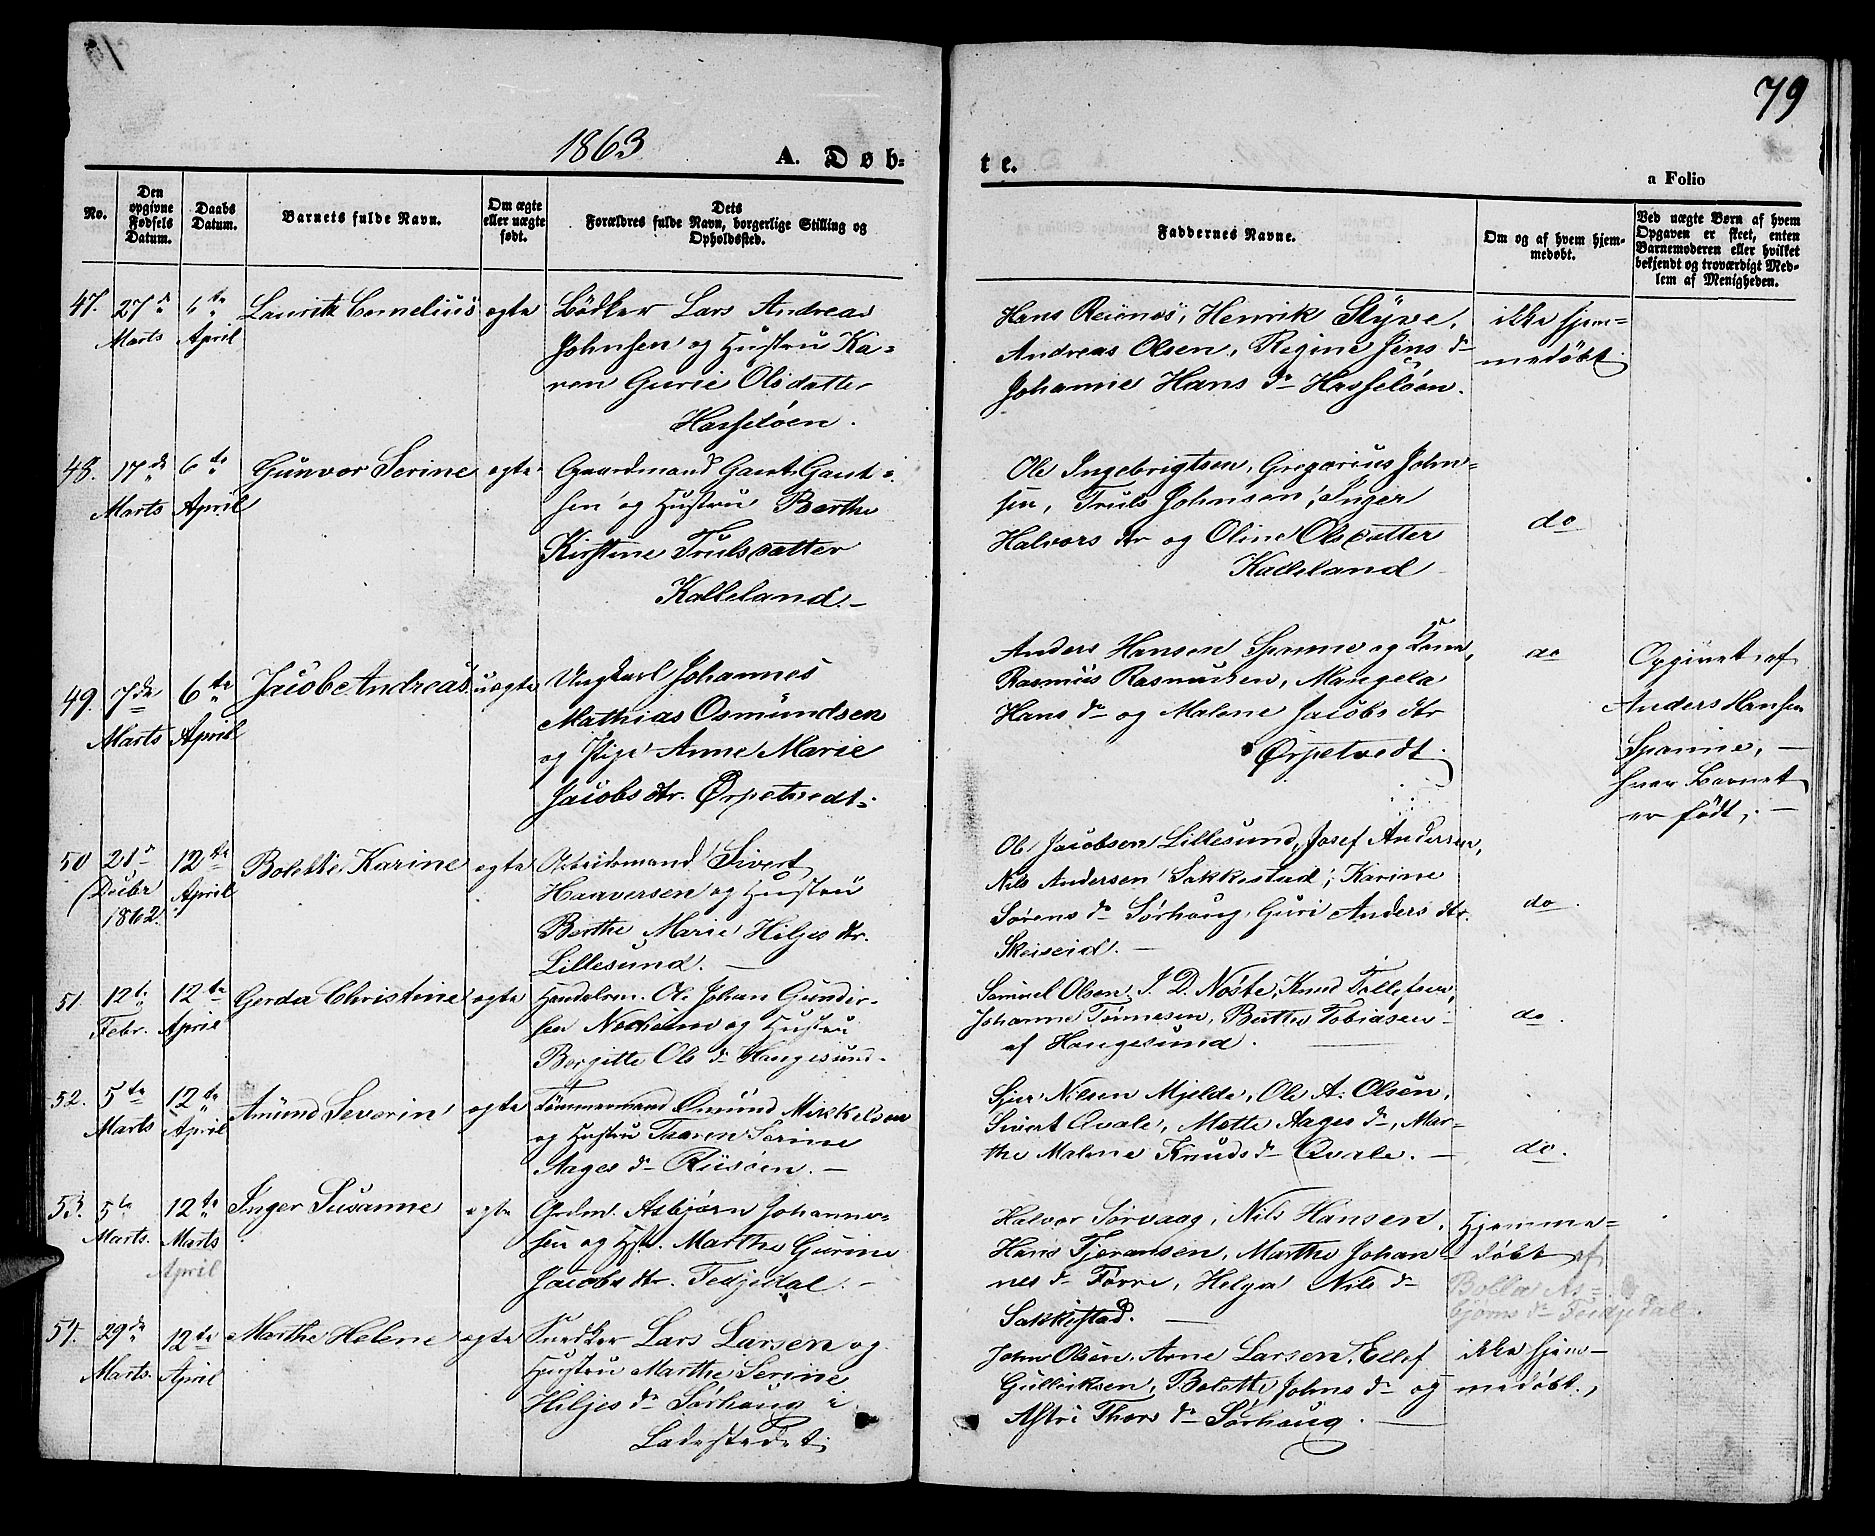 79
1863
A. Døb=
te.
a Folio
No.
Den opgivne Fødsels Datum.
Daabs Datum.
Barnets fulde Navn.
Om ægte eller uægte født.
Dets Forældres fulde Navn, borgerlige Stilling og Opholdssted.
Faddernes Navne.
Om og af hvem hjem-
medøbt.
Ved uægte Børn af hvem
Opgaven er skeet, enten
Barnemoderen eller hvilket
bekjendt og troværdigt Med-
lem af Menigheden.
47. 27de Marts
April
Lauritz Cornelius
ægte
Bödker Lars Andreas
Johnsen og Hustru Ka-
ren Gurie Olsdatter
Hasseløen.
Henrik Styve,
Andreas Olsen, Regine Jens d
Johanne Hans d Hasseløen.
ikke hjem=
medøbt.
48. 17de Marts
6te April
Gunvor Serine
ægte
Gaardmand Gaut Gaut-
sen og Hustru Berthe
Kirstine Trulsdatter
Kalleland.
Ole Ingebrigtsen, Gregorius John=
sen, Truls Johnsen, Inger
Halvors dtr og Oline Olsdatter
Kalleland
do
49. 7de Marts
6te April
Jacob Andreas
uægte
Ungkarl Johannes
Mathias Osmundsen
og Pige Anne Marie
Jacobs dtr. Ørpetvedt.
Anders Hansen Spanne og
Rasmus Rasmussen,
Hans d og Malene Jacobs dtr
Ørpetvedt.
do
Opgivet af
Anders Hansen
Spanne,
hvor Barnet
er født.
50 21
Decbr
1862.
12te April
Bolette Karine
ægte
Arbeidsmand Sivert
Haaversen og Hustru
Berthe Marie Hiljes dtr.
Lillesund.
Ole Jacobsen Lillesund, Josef Andersen,
Nils Andersen Sakkestad, Karine
Sørens d Sørhaug, Guri Anders dtr.
Skeiseid.
do.
51. 12te Febr.
12te April
Gerda Christine
ægte
Handelsm. Ole Johan Gunder-
sen og Hustru
Bergitte Ols d Haugesund.
Samuel Olsen, J. D. Nøste, Knud Tollefsen,
Johanne Tønnesen, Berthe Tobiasen
af Haugesund.
do.
52. 5te Marts
12te April
Amund Severin
ægte
Tømmermand Omund Mikkelsen
og Hustru Tharen Serine
Aages d Risøen.
Sjur Nilsen Mjelde, Ole A. Olsen,
Sivert Qvale, Mette Aages d, Mar-
the Malene Knuds d Qvale.
do.
53. 5te Marts.
12te Marts
April
Inger Susanne
ægte
Grdm. Asbjørn Johannes-
sen og Hst. Marthe Gurine
Jacobs dtr. Tedjedal.
Halvor Sørvaag, Nils Hansen,
Hans Tjeransen, Marthe Johan-
nes d Førre, Helga Nils d
Sakkestad.
Hjemme=
døbt af
Bolla As=
bjørns d Teidjedal.
54. 29de Marts.
12te April
Marthe Helene
ægte
Snedker Lars Larsen og
Hustru Marthe Serine
Hiljes d Sørhaug i
Ladestedet.
John Olsen, Arne Larsen, Ellef
Gulliksen, Bolette Johns d og
Astri Thors d Sørhaug.
ikke hjem-
medøbt.